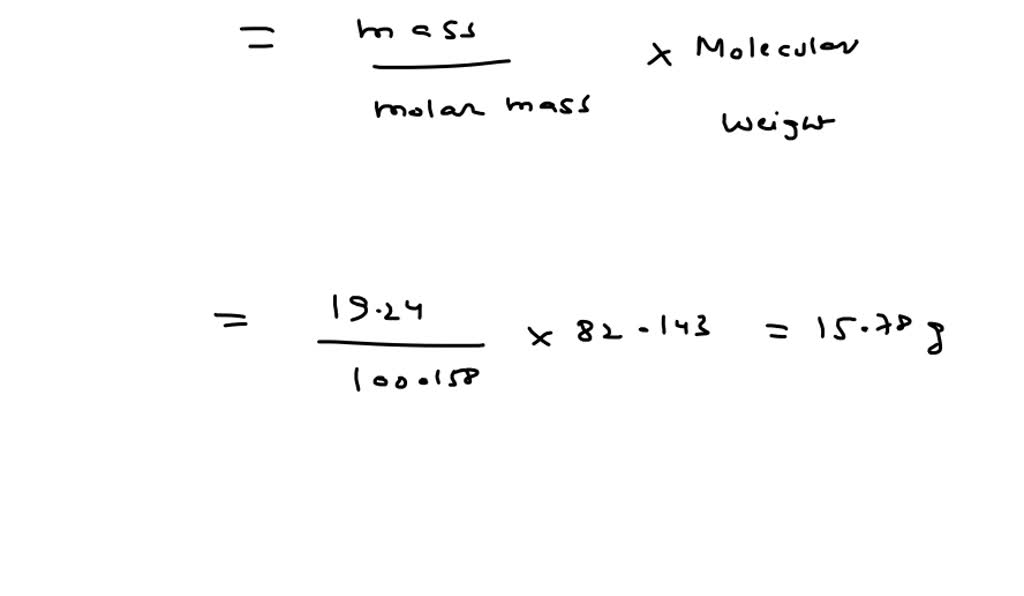 = mass / molar mass × Molecular
Weight
= 19.24 / 100.158 × 82.143 = 15.78 g